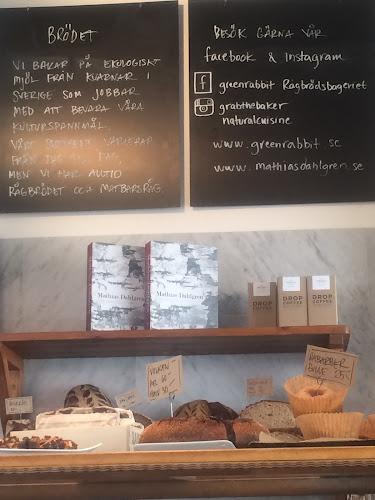 BRÖDET
VI BAKAR PÅ EKOLOGISKT
MJÖL FRÅN KVARNAR I
SVERIGE SOM JOBBAR
MED ATT BEVARA VÅRA
KULTURSPANNMÅL.
VÅRT SORTIMENT VARIERAR
FRÅN DAG TILL DAG,
MEN VI HAR ALLTID
RÅGBRÖDET OCH MATBARSRÅG.
BESÖK GÄRNA VÅR
facebook & Instagram
f greenrabbit Rågbrödsbageriet
grabthebaker
naturalcuisine
www.greenrabbit.se
www.mathiasdahlgren.se
Mathias Dahlgren
Mathias Dahlgren
DROP
COFFEE
DROP
COFFEE
DROP
COFFEE
RABARBER
25:-